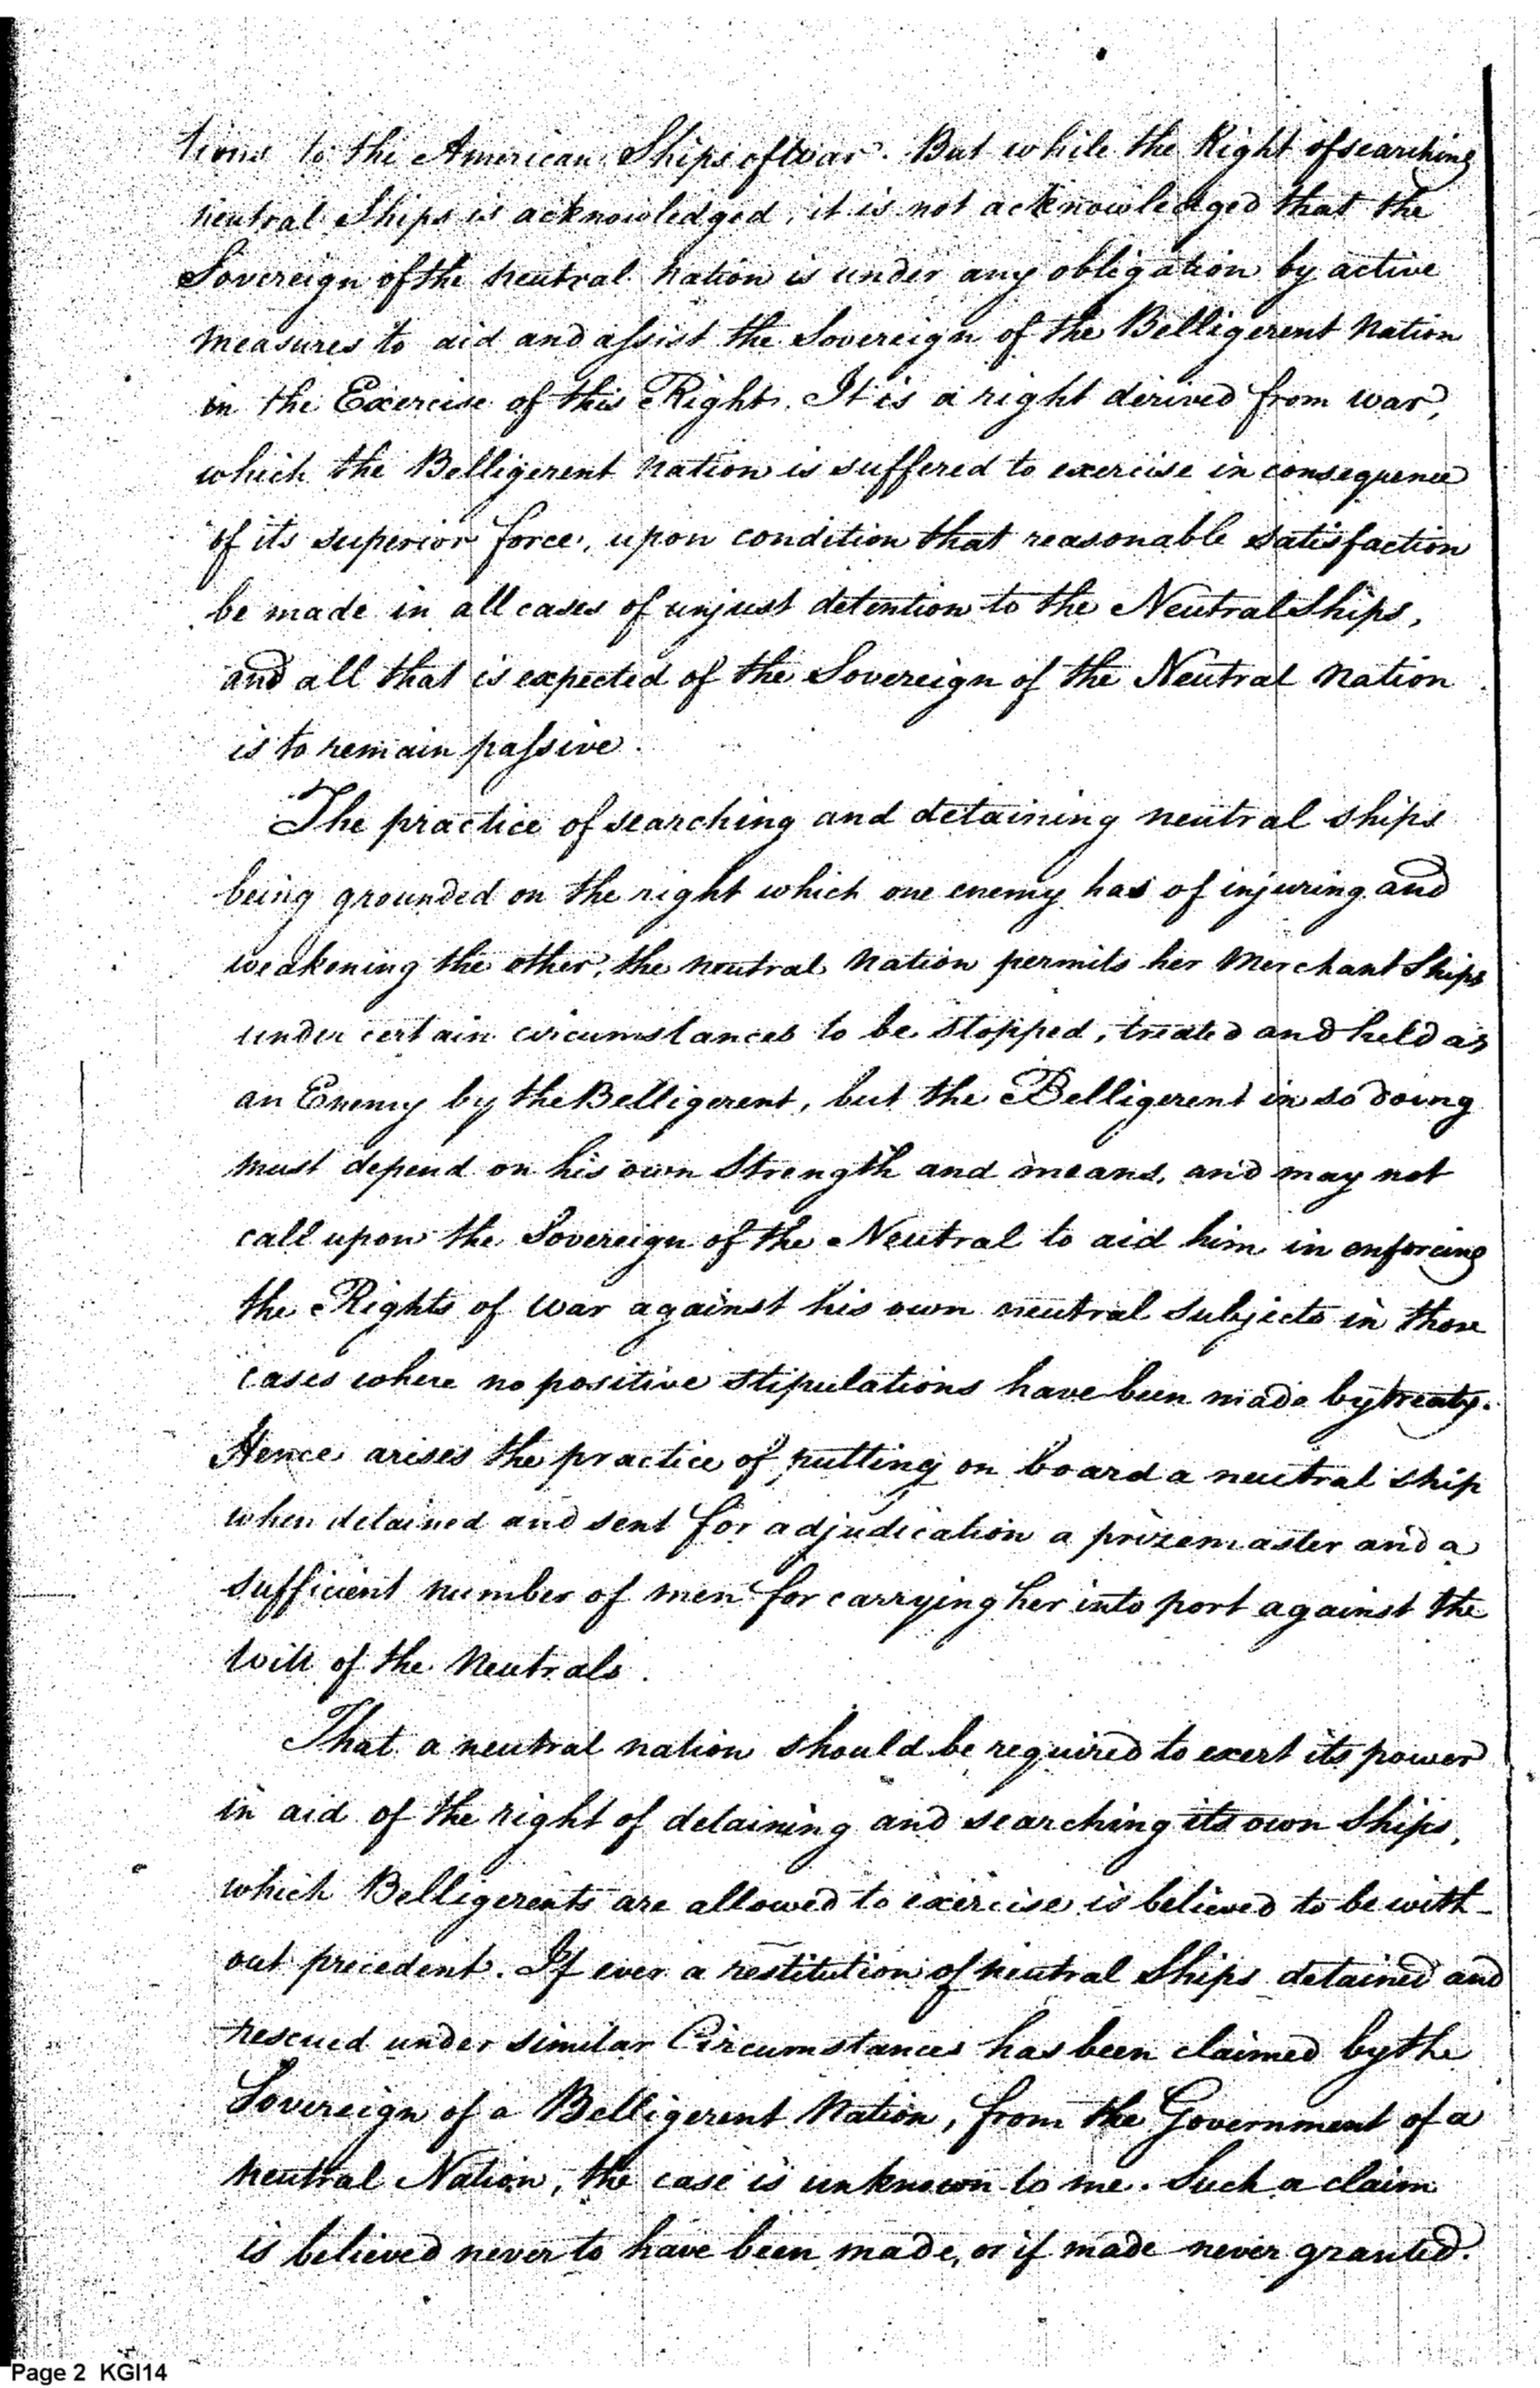 tions to the American Ships of war. But while the Right of searching
neutral Ships is acknowledged, it is not acknowledged that the
Sovereign of the neutral nation is under any obligation by active
measures to aid and assist the Sovereign of the Belligerent Nation
in the Exercise of this Right. It is a right derived from war,
which the Belligerent Nation is suffered to exercise in consequence
of its superior force, upon condition that reasonable satisfaction
be made in all cases of unjust detention to the Neutral Ships,
and all that is expected of the Sovereign of the Neutral Nation
is to remain passive.
The practice of searching and detaining neutral ships
being grounded on the right which one enemy has of injuring and
weakening the other, the neutral Nation permits her Merchant Ships
under certain circumstances to be stopped, treated and held as
an Enemy by the Belligerent, but the Belligerent in so doing
must depend on his own Strength and means, and may not
call upon the Sovereign of the Neutral to aid him in enforcing
the Rights of war against his own neutral subjects in those
cases where no positive stipulations have been made by treaty.
Hence arises the practice of putting on board a neutral ship
when detained and sent for adjudication a prizemaster and a
sufficient number of men for carrying her into port against the
will of the Neutrals.
That a neutral nation should be required to exert its power
in aid of the right of detaining and searching its own Ships,
which Belligerents are allowed to exercise is believed to be with-
out precedent. If ever a restitution of neutral Ships detained and
rescued under similar Circumstances has been claimed by the
Sovereign of a Belligerent Nation, from the Government of a
neutral Nation, the case is unknown to me. Such a claim
is believed never to have been made, or if made never granted.
Page 2 KGI14